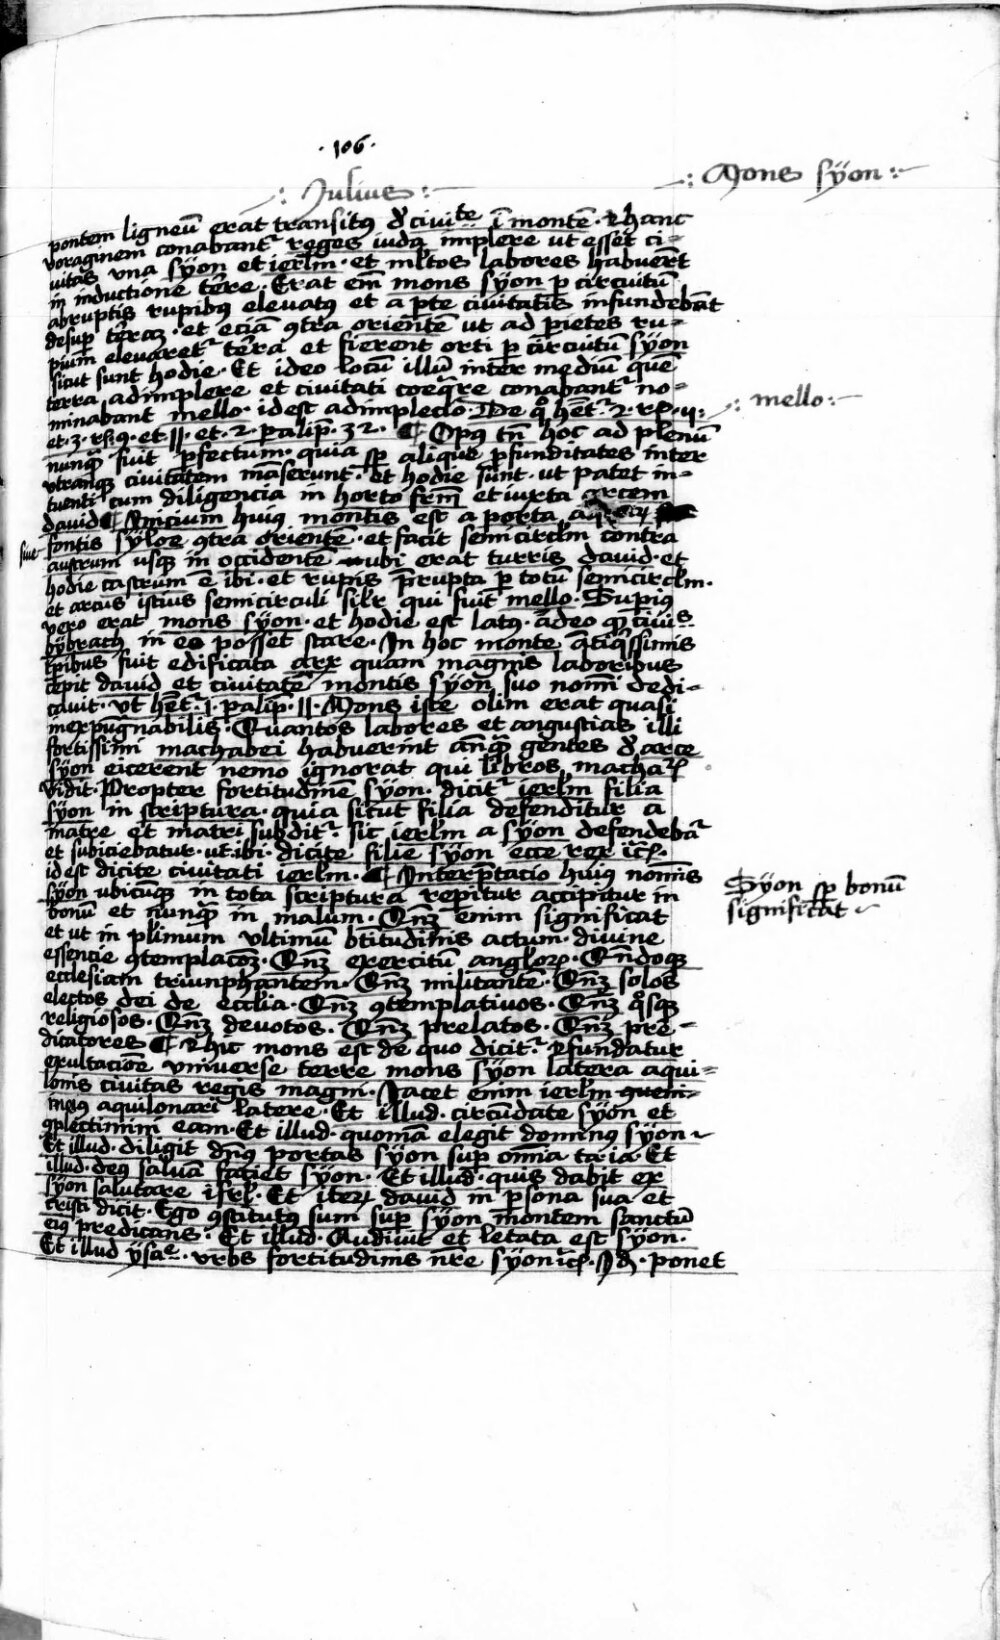 · 106 ·
·: Julius :·
·: Mons syon :·
pontem ligneū erat transitꝰ đ ciuite ī montē · Et hanc
voraginem conabantr reges iuda implere ut esset ci-
uitas vna syon et ierlm · et mltos labores habuert
in inductione tere · Erat em mons syon p circuitū
abruptis rupibꝰ eleuatꝰ et a pte ciuitatis infundebāt
desup terā · et eciā ꝯtra orientē ut ad pietes ru-
pium eleuaretr terra et fierent orti p circuitū syon
sicut sunt hodie · Et ideo locū illū inter mediū quē
terra adimplere et ciuitati coequare conabantr no-
minabant mello · idest adimplecio · De qͦ hētr 2 · r · 11 ·
·: mello :·
et · 3 · 9 · et · 11 · et · 2 · palip · 32 · ¶ Opꝰ tn hoc ad plenū
nunqͣ fuit pfectum · quia sp alique pfunditates inter
utranqꝫ ciuitatem māserunt · et hodie sunt · ut patet in-
tuenti cum diligencia in horto frm et iuxta arcem
dauid ¶ Inicium huiꝰ montis est a porta
siue
fontis syloe ꝯtra orientē · et facit semicirclm contra
austrum usqꝫ in occidentē ubi erat turris dauid · et
hodie castrum ē ibi · et rupis prupta p totū semicirclm ·
et arcus istius semicirculi silr qui fuit mello · Superius
vero erat mons syon · et hodie est latꝰ · adeo qͦ ciuis
in eo posset stare · In hoc monte ātiqissimis
tpibus fuit edificata arx quam magnis laboribus
cepit dauid et ciuitatē montis syon suo nomi dedi-
cauit · vt hētr 1 · palip · 11 · Mons iste olim erat quasi
inexpugnabilis · Quantos labores et angustias illi
fortissimi machabei habuerint anqͣ gentes đ arce
syon eicerent nemo ignorat qui libros machaƺ
vidit · Propter fortitudine syon · dicitr ierlm filia
syon in scriptura · quia sicut filia defenditur a
matre et matri subditr · sic ierlm a syon defendebar
et subiciebatur · ut ibi · dicite filie syon ecce rex ꝛc ·
idest dicite ciuitati ierlm · ¶ Interptacio huiꝰ nomīs
syon ubicūqꝫ in tota scriptura repitur accipitur in
Syon sp bonū
significat
bonū et nunqͣ in malum · Qnꝫ enim significat
et ut in plimum vltimū btitudinis actum · diuine
essencie ꝯtemplacoꝫ · Qnꝫ exercitū anglorꝫ · Qndoqꝫ
ecclesiam triumphantem · Qnꝫ militantē · Qnꝫ solos
electos dei de ecclia · Qnꝫ ꝯtemplatiuos · Qnꝫ qͦsqꝫ
religiosos · Qnꝫ deuotos · Qnꝫ prelatos · Qnꝫ pre-
dicatores ¶ Et hic mons est de quo dicitr · fundatur
exultacione vniuerse terre mons syon latera aqui-
lonis ciuitas regis magni · Jacet enim ierlm
aquilonari latere · Et illud · circūdate syon et
ꝯplectimini eam · Et illud · quoniā elegit dominꝰ syon
Et illud · diligit dnꝰ portas syon sup omnia ta ia Et
illud · deꝰ saluā faciet syon · Et illud · quis dabit ex
syon salutare isrl · Et iterꝫ dauid in psona sua et
cristi dicit · Ego ꝯstitutꝰ sum sup syon montem sanctū
eiꝰ predicans · Et illud · Audiuit et letata est syon ·
Et illud ysae · vrbs fortitudinis nre syon ꝛc · Jđ · ponet